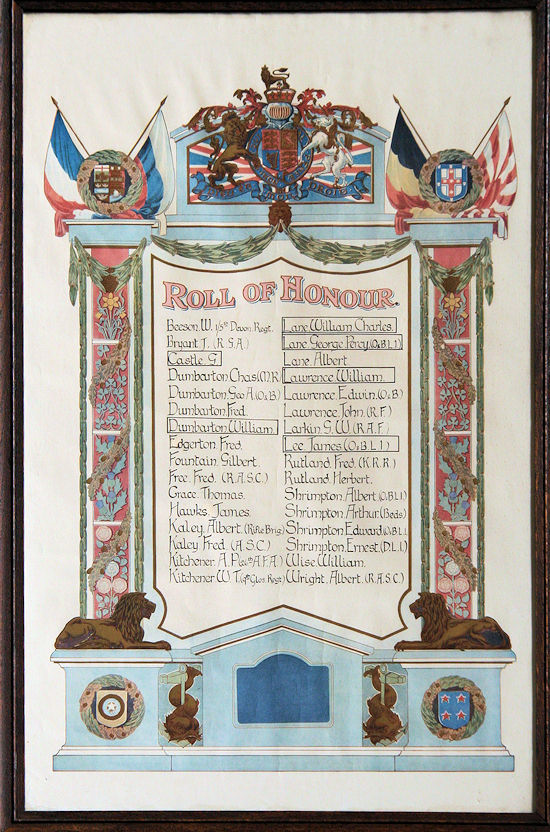 ROLL OF HONOUR.
Beeson. W. 1/5th Devon. Regt.
Bryant J. (R.G.A.)
Castle. G.
Dumbarton. Chas. (M.R.)
Dumbarton. Geo A. (O&B)
Dumbarton. Fred.
Dumbarton. William.
Edgerton. Fred.
Fountain. Gilbert.
Free. Fred. (R.A.S.C.)
Grace. Thomas.
Hawks. James.
Kaley. Albert. (Rifle Brig.)
Kaley Fred. (A.S.C.)
Kitchener. A. P.
Kitchener W. T. (9th Glos. Regt)
Lane William Charles.
Lane George Percy. (O&B.L.I)
Lane Albert.
Lawrence. William.
Lawrence. Edwin. (O&B)
Lawrence. John. (R.F)
Larkin. S. W. (R.A.F.)
Lee. James. (O&B.L.I)
Rutland. Fred. (K.R.R)
Rutland. Herbert.
Shrimpton. Albert. (O.B.L.I)
Shrimpton. Arthur. (Beds)
Shrimpton. Edward. (O.B.L.I.
Shrimpton. Ernest. (D.L.I)
Wise. William.
Wright. Albert. (R.A.S.C)